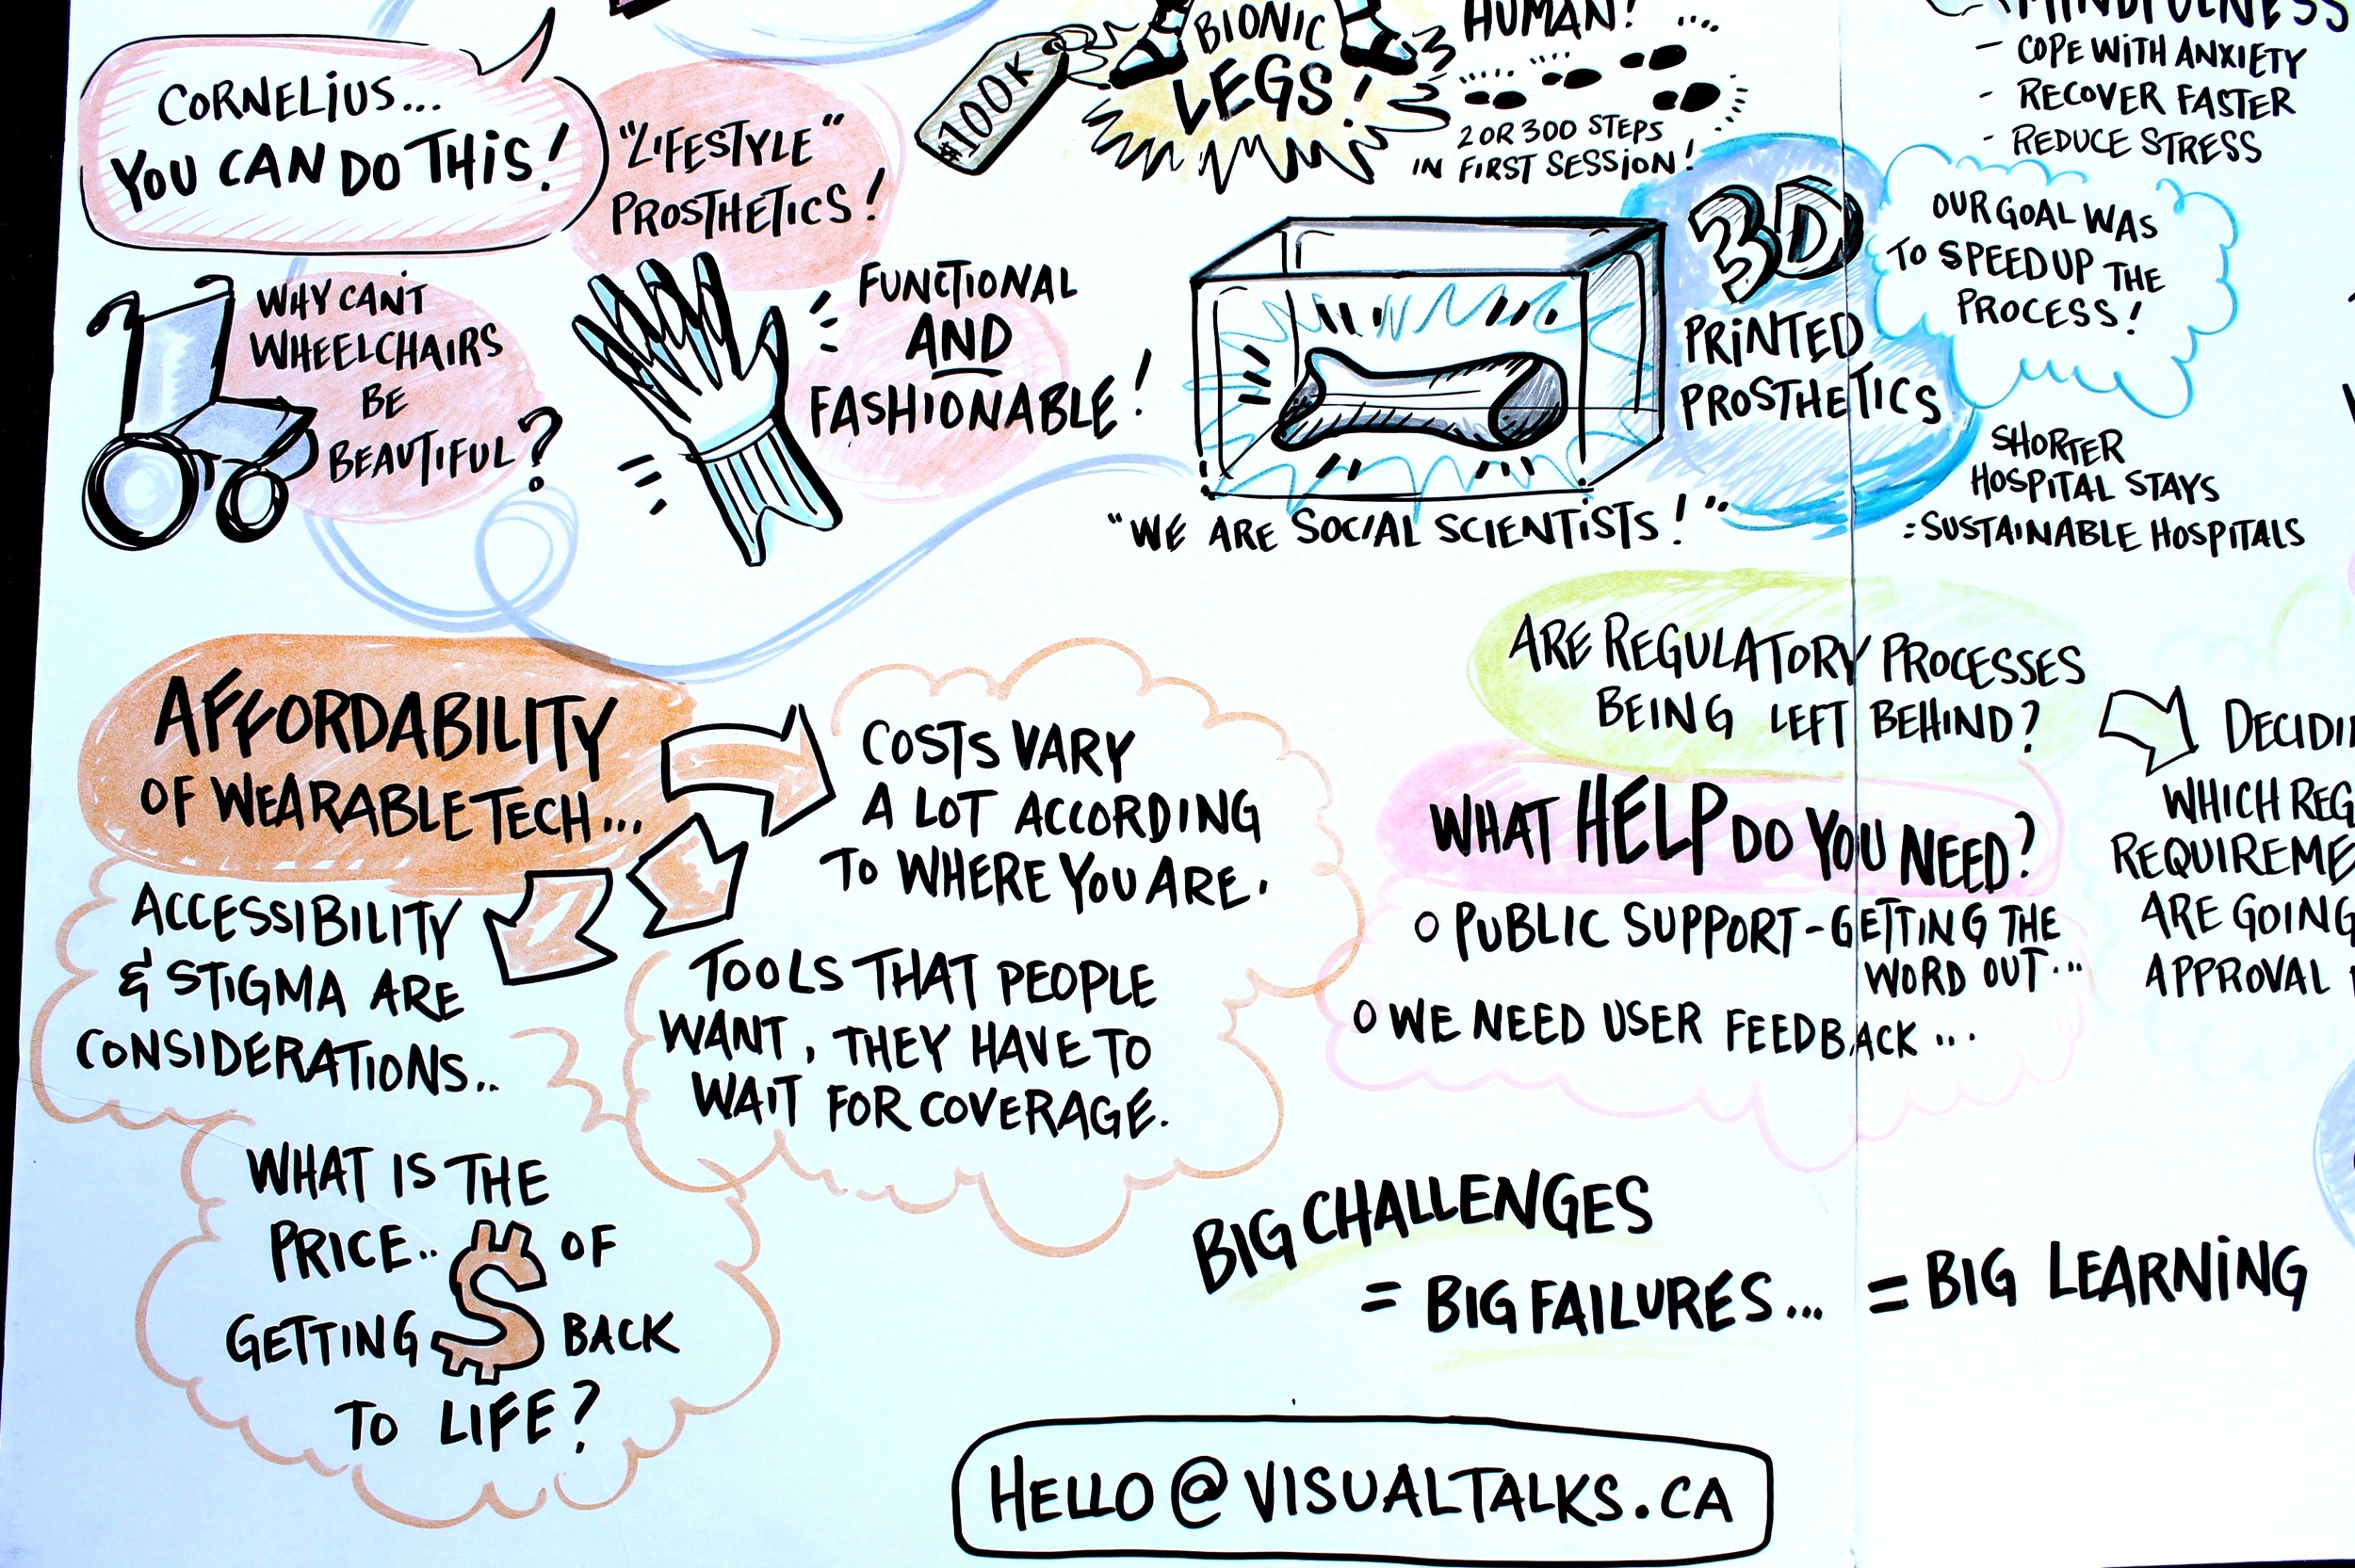 CORNELIUS...
YOU CAN DO THIS!
"LIFESTYLE"
PROSTHETICS!
WHY CAN'T
WHEELCHAIRS
BE
BEAUTIFUL?
FUNCTIONAL
AND
FASHIONABLE!
$100K
BIONIC
LEGS!
HUMAN! ....
2 OR 300 STEPS
IN FIRST SESSION!
MINDFULNESS
- COPE WITH ANXIETY
- RECOVER FASTER
- REDUCE STRESS
3D
PRINTED
PROSTHETICS
OUR GOAL WAS
TO SPEED UP THE
PROCESS!
SHORTER
HOSPITAL STAYS
= SUSTAINABLE HOSPITALS
"WE ARE SOCIAL SCIENTISTS!"
AFFORDABILITY
OF WEARABLE TECH...
COSTS VARY
A LOT ACCORDING
TO WHERE YOU ARE.
ACCESSIBILITY
& STIGMA ARE
CONSIDERATIONS..
TOOLS THAT PEOPLE
WANT, THEY HAVE TO
WAIT FOR COVERAGE.
WHAT IS THE
PRICE.. $ OF
GETTING BACK
TO LIFE?
ARE REGULATORY PROCESSES
BEING LEFT BEHIND?
DECIDI
WHICH REG
REQUIREME
ARE GOING
APPROVAL
WHAT HELP DO YOU NEED?
O PUBLIC SUPPORT - GETTING THE
WORD OUT...
O WE NEED USER FEEDBACK...
BIG CHALLENGES
= BIG FAILURES... = BIG LEARNING
HELLO@VISUALTALKS.CA